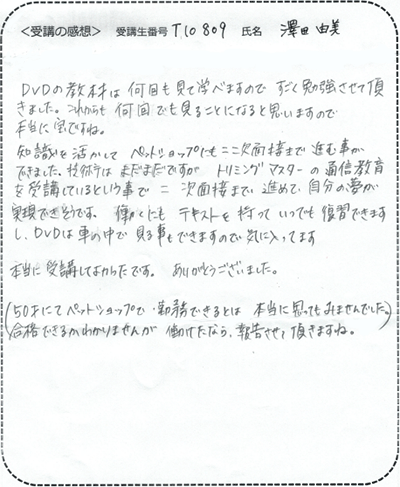 <受講の感想> 受講生番号 T10809 氏名 澤田 由美
DVDの教材は何回も見て学べますので すごく勉強させて頂
きました。これからも 何回でも見ることになると思いますので
本当に宝ですね。
知識を活かして ペットショップにも 二次面接まで 進む事が
できました。技術はまだまだですが トリミングマスターの通信教育
を受講しているという事で 二次面接まで進めて、自分の夢が
実現できそうです。 働くにも テキストを持って いつでも復習できます
し、DVDは車の中で 見る事もできますので気に入ってます
本当に受講してよかったです。 ありがとうございました。
(50才にてペットショップで 勤務できるとは 本当に思ってもみませんでした。
合格できるかわかりませんが 働けたなら、報告させて頂きますね。)